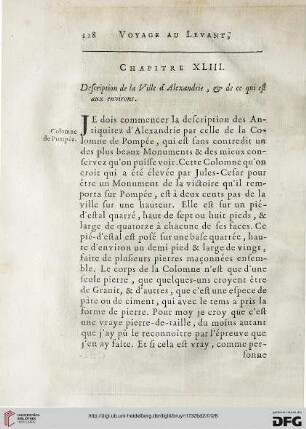 128 VOYAGE AU LEVANT;
CHAPITRE XLIII.
Description de la Ville d'Alexandrie, & de ce qui est
aux environs.
Colomne
de Pompée.
JE dois commencer la description des An-
tiquitez d'Alexandrie par celle de la Co-
lomne de Pompée, qui est sans contredit un
des plus beaux Monuments & des mieux con-
servez qu'on puisse voir. Cette Colomne qu'on
croit qui a été élevée par Jules-Cesar pour
être un Monument de la victoire qu'il rem-
porta sur Pompée, est à deux cents pas de la
ville sur une hauteur. Elle est sur un pié-
d'estal quarré, haut de sept ou huit pieds, &
large de quatorze à chacune de ses faces. Ce
pié-d'estal est posé sur une base quarrée, hau-
te d'environ un demi pied & large de vingt,
faite de plusieurs pierres maçonnées ensem-
ble. Le corps de la Colomne n'est que d'une
seule pierre, que quelques-uns croyent être
de Granit, & d'autres, que c'est une espece de
pâte ou de ciment, qui avec le tems a pris la
forme de pierre. Pour moy je croy que c'est
une vraye pierre-de-taille, du moins autant
que j'ay pû le reconnoître par l'épreuve que
j'en ay faite. Et si cela est vray, comme per-
sonne
http://digi.ub.uni-heidelberg.de/diglit/bruyn1732bd2/0128
DFG